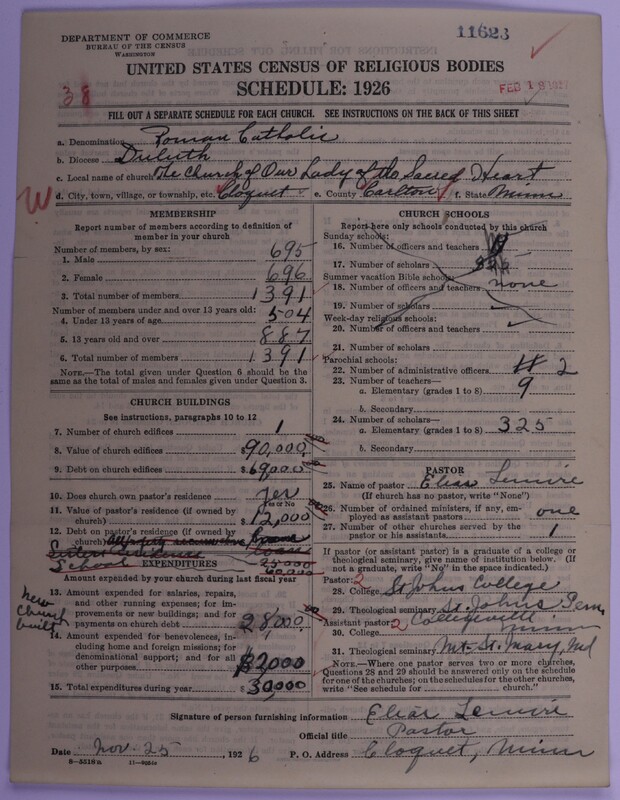 DEPARTMENT OF COMMERCE
BUREAU OF THE CENSUS
WASHINGTON
11623
UNITED STATES CENSUS OF RELIGIOUS BODIES
SCHEDULE: 1926
38
FEB 18 1927
FILL OUT A SEPARATE SCHEDULE FOR EACH CHURCH. SEE INSTRUCTIONS ON THE BACK OF THIS SHEET
a. Denomination Roman Catholic
b. Diocese Duluth
c. Local name of church The Church of Our Lady of the Sacred Heart
W
d. City, town, village, or township, etc. Cloquet e. County Carlton f. State Minn
MEMBERSHIP
Report number of members according to definition of
member in your church
Number of members, by sex:
1. Male 695
2. Female 696
3. Total number of members 1391
Number of members under and over 13 years old:
4. Under 13 years of age 504
5. 13 years old and over 887
6. Total number of members 1391
NOTE.—The total given under Question 6 should be the
same as the total of males and females given under Question 3.
CHURCH BUILDINGS
See instructions, paragraphs 10 to 12
7. Number of church edifices 1
8. Value of church edifices $90,000
9. Debt on church edifices $69,000
10. Does church own pastor's residence Yes
Yes or No
11. Value of pastor's residence (if owned by
church) $12,000
12. Debt on pastor's residence (if owned by
church)
Sisters Residence
School 25000
60,000
EXPENDITURES
Amount expended by your church during last fiscal year
New
Church
built
13. Amount expended for salaries, repairs,
and other running expenses; for im-
provements on new buildings; and for
payments on church debt 28,000
14. Amount expended for benevolences, in-
cluding home and foreign missions; for
denominational support; and for all
other purposes $2000
15. Total expenditures during year $30,000
CHURCH SCHOOLS
Report here only schools conducted by this church
Sunday schools:
16. Number of officers and teachers
17. Number of scholars 325
Summer vacation Bible schools:
18. Number of officers and teachers none
19. Number of scholars
Week-day religious schools:
20. Number of officers and teachers
21. Number of scholars
Parochial schools:
22. Number of administrative officers 2
23. Number of teachers—
a. Elementary (grades 1 to 8) 9
b. Secondary
24. Number of scholars—
a. Elementary (grades 1 to 8) 325
b. Secondary
PASTOR
25. Name of pastor Elias Lemire
(If church has no pastor, write "None")
26. Number of ordained ministers, if any, em-
ployed as assistant pastors one
27. Number of other churches served by the
pastor or his assistants 1
If pastor (or assistant pastor) is a graduate of a college or
theological seminary, give name of institution below. (If
not a graduate, write "No" in the space indicated.)
Pastor: 2
28. College St Johns College
29. Theological seminary St. Johns Sem
Assistant pastor: 2 Collegeville
30. College Minn
31. Theological seminary Mt. St. Mary, Md
NOTE.—Where one pastor serves two or more churches,
Questions 28 and 29 should be answered only on the schedule
for one of the churches; on the schedules for the other churches,
write "See schedule for church."
Signature of person furnishing information Elias Lemire
Official title Pastor
Date Nov. 25, 1926 P. O. Address Cloquet, Minn
8—5518a